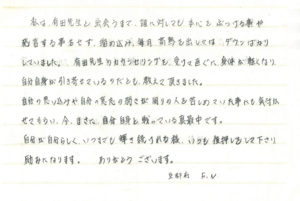 私は、有田先生と出会うまで、誰に対しても本心をぶつける事や
発言する事もせず、溜め込み、毎月高熱を出しては、ダウンばかり
していました。有田先生のカウンセリングを受けて直ぐに身体が軽くなり、
自分自身が引き寄せているのだとも、教えて頂きました。
自分の思い込みや自分の発先の弱さが周りの人を苦しめていた事にも気付か
せてもらい、今、まさに、自分自身と戦っている真最中です。
自分が自分らしく、いつまでも輝き続けれる様、いつも後押しをして下さり
励みになります。 ありがとうございます。
京都府 F.N